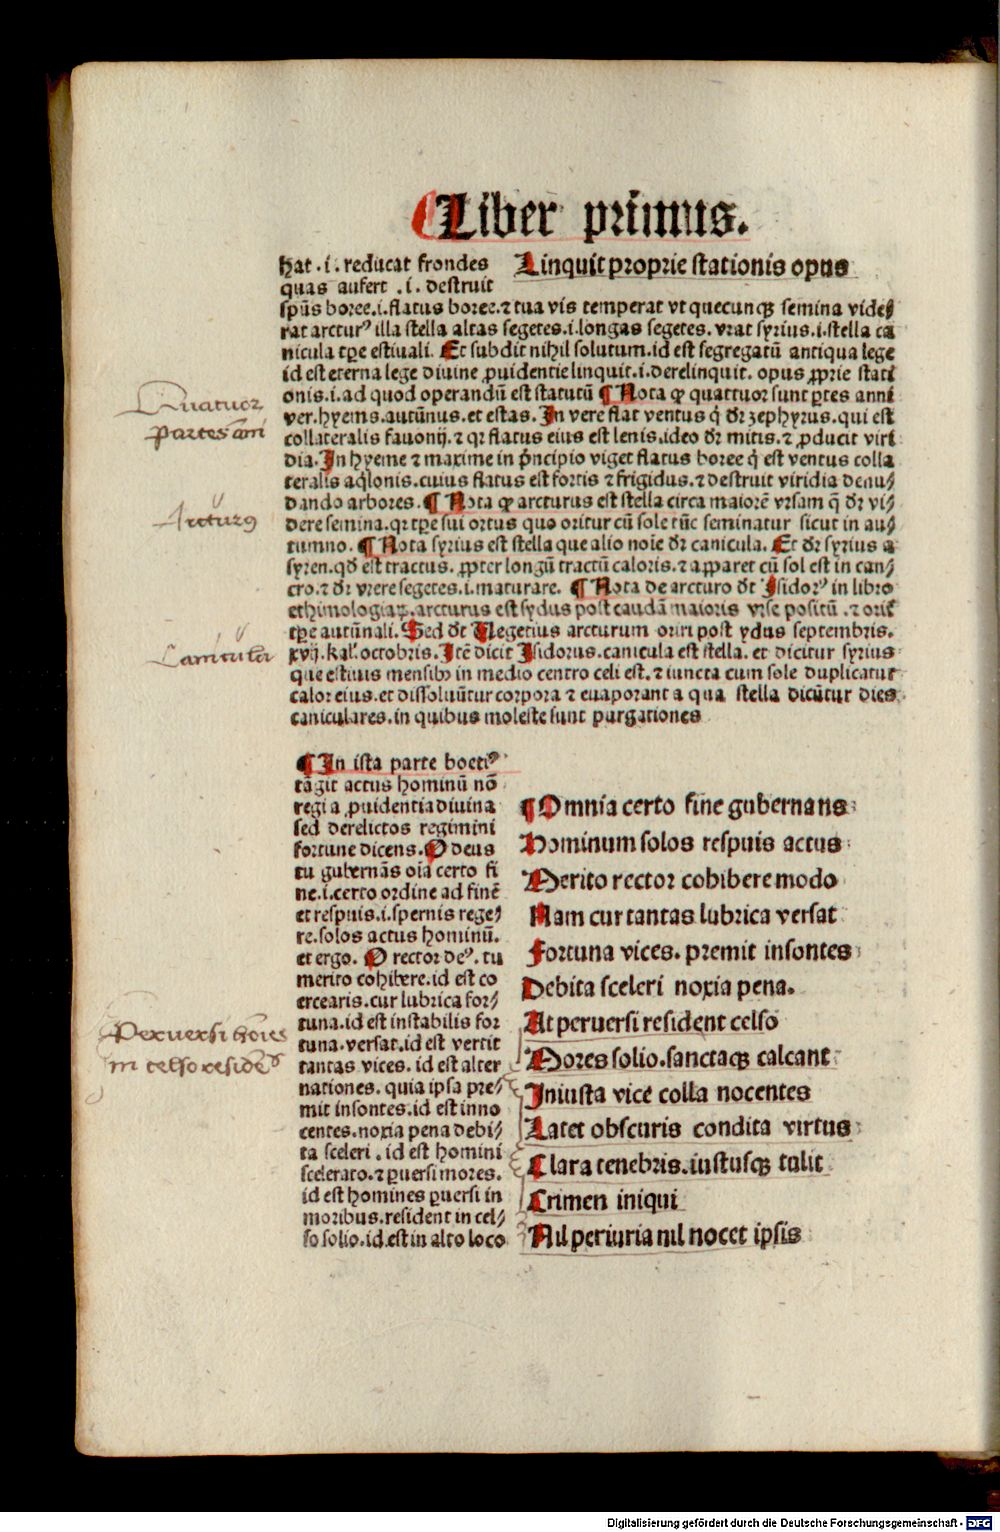 Liber primus.
hat .i. reducat frondes
quas aufert .i. destruit
Linquit proprie stationis opus
spūs boree.i.flatus boree.⁊ tua vis temperat vt quecunqꝫ semina vide⸗
rat arcturꝰ illa stella altas segetes.i.longas segetes. vrat syrius.i.stella ca
nicula tꝑe estiuali. Et subdit nihil solutum.id est segregatū antiqua lege
id est eterna lege diuine ꝓuidentie linquit.i.derelinquit. opus ꝓprie stati
onis.i.ad quod operandū est statutū ¶ Nota ꝙ quattuor sunt ꝑtes anni
ver.hyems.autūnus.et estas. In vere flat ventus q̇ dr̄ zephyrus.qui est
collateralis fauonij.⁊ qr flatus eius est lenis.ideo dr̄ mitis.⁊ ꝓducit viri
dia.In hyeme ⁊ maxime in p̄ncipio viget flatus boree q̇ est ventus colla
teralis aq̇lonis.cuius flatus est fortis ⁊ frigidus.⁊ destruit viridia denu⸗
dando arbores. ¶ Nota ꝙ arcturus est stella circa maiorē vrsam q̄ dr̄ vi⸗
dere semina.qr tꝑe sui ortus quo oritur cū sole tūc seminatur sicut in au⸗
tumno. ¶ Nota syrius est stella que alio noīe dr̄ canicula. Et dr̄ syrius a
syren.qd̄ est tractus. ꝓpter longū tractū caloris.⁊ apparet cū sol est in can⸗
cro.⁊ dr̄ vrere segetes.i.maturare. ¶ Nota de arcturo dt̄ Isidorꝰ in libro
ethimologiaꝝ.arcturus est sydus post caudā maioris vrse positū .⁊ orit᷑
tꝑe autūnali. Sed dt̄ Vegetius arcturum oriri post ydus septembris.
xvij.kal'.octobris. Itē dicit Isidorus.canicula est stella. et dicitur syrius
que estiuis mensibꝰ in medio centro celi est.⁊ iuncta cum sole duplicatur
calor eius.et dissoluūtur corpora ⁊ euaporant a qua stella dicūtur dies
caniculares.in quibus moleste sunt purgationes
Quatuor
partes ani
Arcturꝰ
Canicula
¶ In ista parte boetiꝰ
tāgit actus hominū nō
regi a ꝓuidentia diuina
sed derelictos regimini
fortune dicens. O deus
tu gubernās oīa certo fi
ne.i.certo ordine ad finē
et respuis.i.spernis rege⸗
re.solos actus hominū.
et ergo. O rector deꝰ. tu
merito cohibere.id est co
ercearis.cur lubrica for⸗
tuna.id est instabilis for
tuna.versat.id est vertit
tantas vices. id est alter
nationes. quia ipsa pre⸗
mit insontes.id est inno
centes.noxia pena debi⸗
ta sceleri . id est homini
scelerato.⁊ ꝑuersi mores.
id est homines ꝑuersi in
moribus.resident in cel⸗
so solio.id.est in alto loco
¶ Omnia certo fine gubernans
Hominum solos respuis actus
Merito rector cohibere modo
Nam cur tantas lubrica versat
Fortuna vices. premit insontes
Debita sceleri noxia pena.
At peruersi resident celso
Mores solio.sanctaqꝫ calcant
Iniusta vice colla nocentes
Latet obscuris condita virtus
Clara tenebris.iustusqꝫ tulit
Crimen iniqui
Nil periuria nil nocet ipsis
Peruersi hoīes
in celso residēt
Digitalisierung gefördert durch die Deutsche Forschungsgemeinschaft - DFG